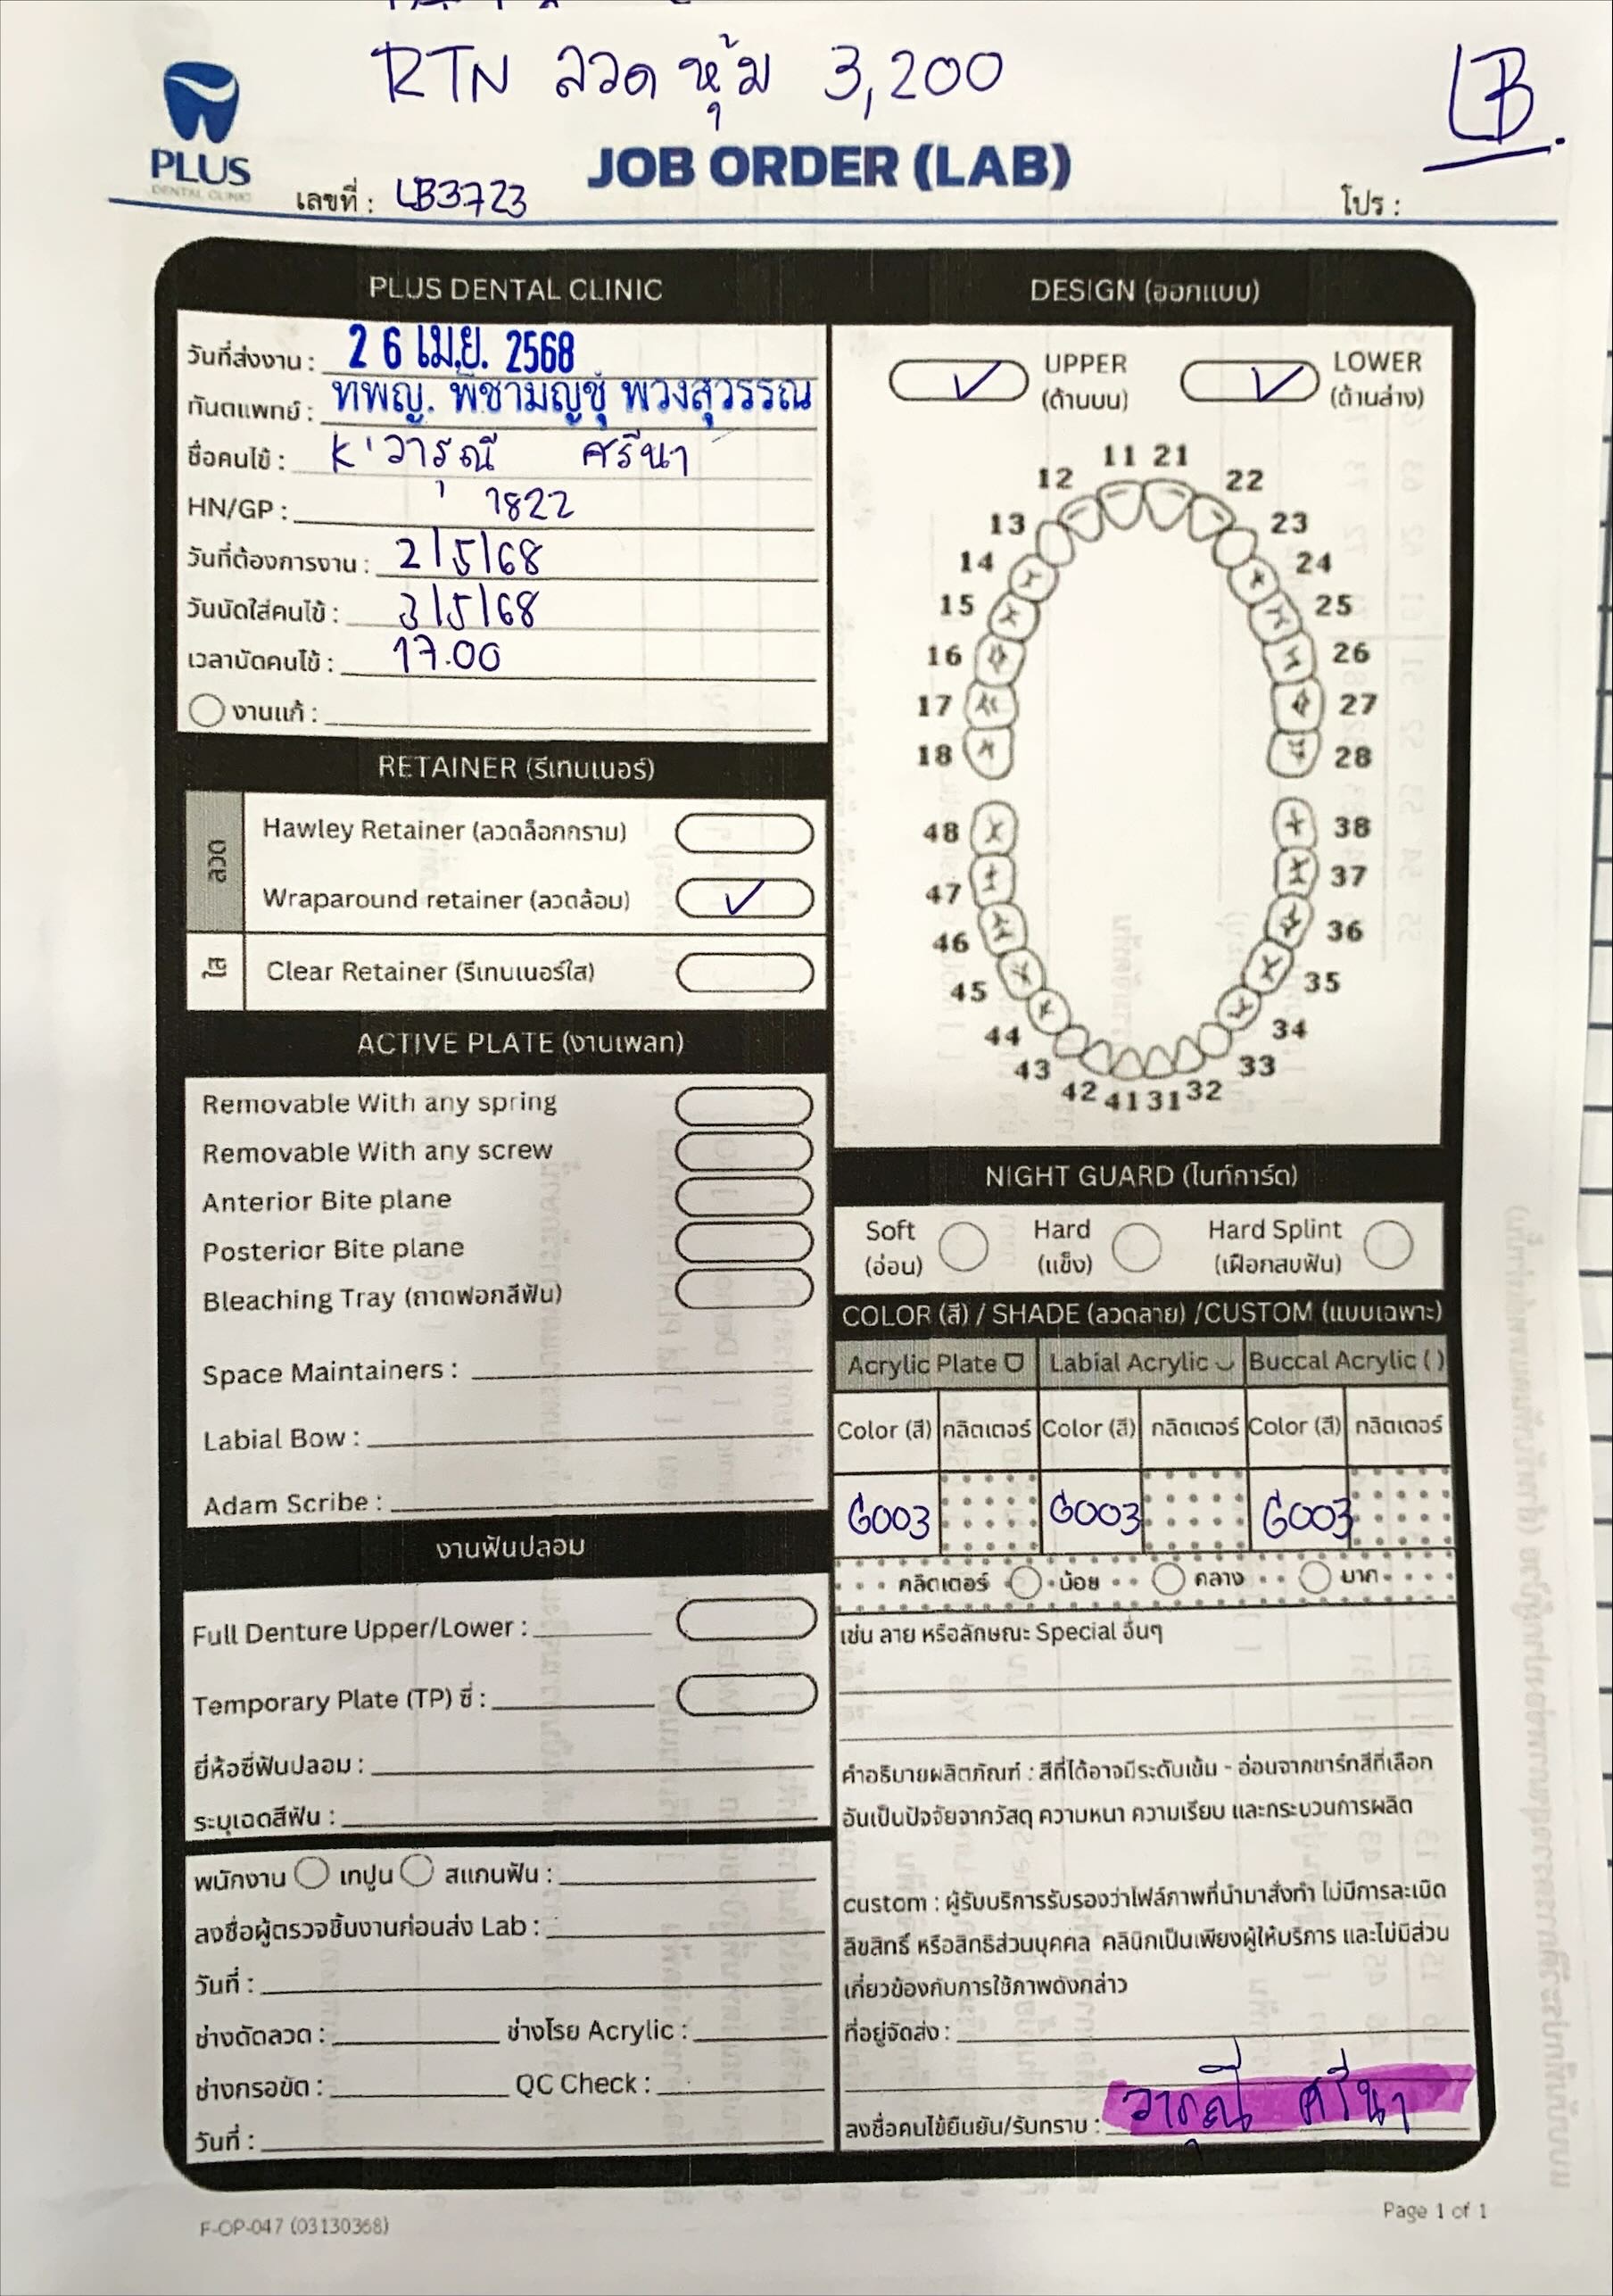 RTN ลวด หุ้ม 3,200
LB.
PLUS
DENTAL CLINIC
JOB ORDER (LAB)
เลขที่ : LB3723
โปร :
PLUS DENTAL CLINIC
วันที่ส่งงาน : 26 เม.ย. 2568
ทันตแพทย์ : ทพญ. พิชามญชุ์ พวงสุวรรณ
ชื่อคนไข้ : K'วารุณี ศรีนา
HN/GP : 1822
วันที่ต้องการงาน : 2/5/68
วันนัดใส่คนไข้ : 3/5/68
เวลานัดคนไข้ : 17.00
งานแก้ :
RETAINER (รีเทนเนอร์)
ลวด
Hawley Retainer (ลวดล็อกกราม)
Wraparound retainer (ลวดล้อม)
ใส
Clear Retainer (รีเทนเนอร์ใส)
ACTIVE PLATE (งานเพลท)
Removable With any spring
Removable With any screw
Anterior Bite plane
Posterior Bite plane
Bleaching Tray (ถาดฟอกสีฟัน)
Space Maintainers :
Labial Bow :
Adam Scribe :
งานฟันปลอม
Full Denture Upper/Lower :
Temporary Plate (TP) ซี่ :
ยี่ห้อซี่ฟันปลอม :
ระบุเฉดสีฟัน :
พนักงาน เทปูน สแกนฟัน :
ลงชื่อผู้ตรวจชิ้นงานก่อนส่ง Lab :
วันที่ :
ช่างดัดลวด : ช่างโรย Acrylic :
ช่างกรอขัด : QC Check :
วันที่ :
DESIGN (ออกแบบ)
UPPER (ด้านบน)
LOWER (ด้านล่าง)
11 21
12 22
13 23
14 24
15 25
16 26
17 27
18 28
48 38
47 37
46 36
45 35
44 34
43 33
42 41 31 32
NIGHT GUARD (ไนท์การ์ด)
Soft (อ่อน)
Hard (แข็ง)
Hard Splint (เฝือกสบฟัน)
COLOR (สี) / SHADE (ลวดลาย) /CUSTOM (แบบเฉพาะ)
Acrylic Plate Labial Acrylic Buccal Acrylic ( )
Color (สี) กลิตเตอร์ Color (สี) กลิตเตอร์ Color (สี) กลิตเตอร์
G003 G003 G003
กลิตเตอร์ น้อย กลาง มาก
เช่น ลาย หรือลักษณะ Special อื่นๆ
คำอธิบายผลิตภัณฑ์ : สีที่ได้อาจมีระดับเข้ม - อ่อนจากชาร์ทสีที่เลือก
อันเป็นปัจจัยจากวัสดุ ความหนา ความเรียบ และกระบวนการผลิต
custom : ผู้รับบริการรับรองว่าไฟล์ภาพที่นำมาสั่งทำ ไม่มีการละเมิด
ลิขสิทธิ์ หรือสิทธิส่วนบุคคล คลินิกเป็นเพียงผู้ให้บริการ และไม่มีส่วน
เกี่ยวข้องกับการใช้ภาพดังกล่าว
ที่อยู่จัดส่ง :
ลงชื่อคนไข้ยืนยัน/รับทราบ : วารุณี ศรีนา
F-OP-047 (03130368)
Page 1 of 1